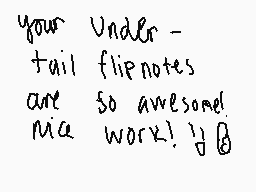 your Under-
tail flipnotes
are so awesome!
nice work!